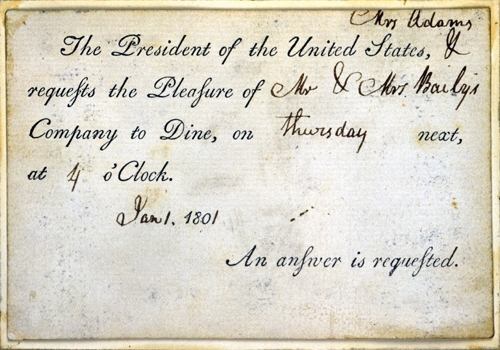 Mrs Adams
The President of the United States, &
requeſts the Pleaſure of Mr & Mrs Baily's
Company to Dine, on thursday next,
at 4 o'Clock.
Jan 1. 1801
An anſwer is requeſted.